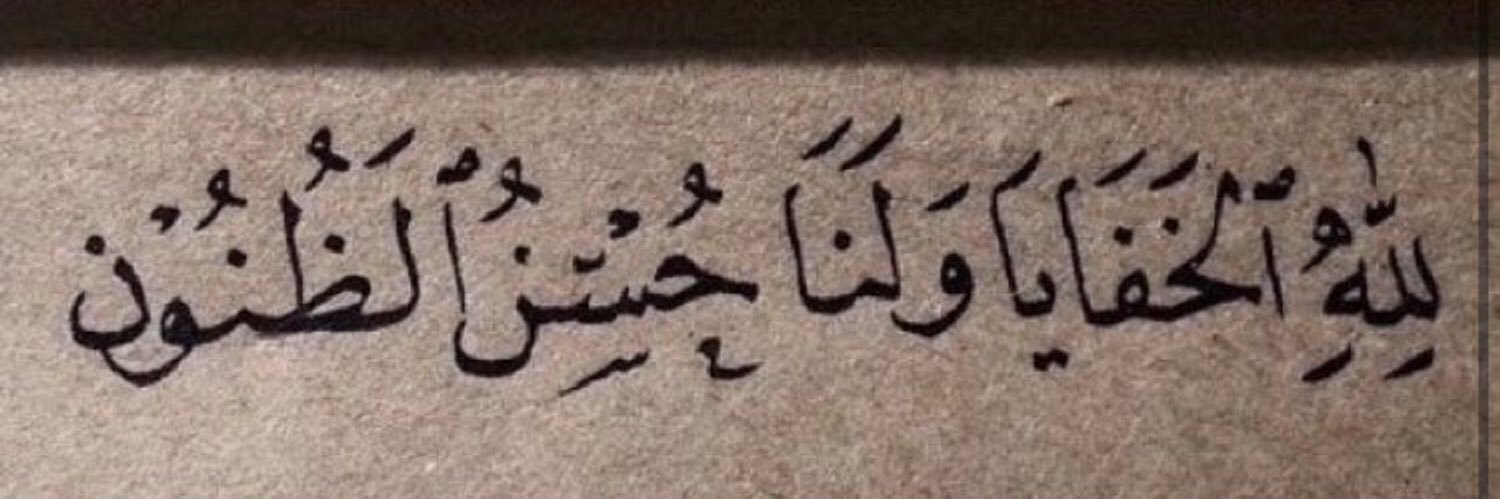 لِلّٰهِ ٱلخَفَايَا وَلَنَا حُسْنُ ٱلظُّنُوْن